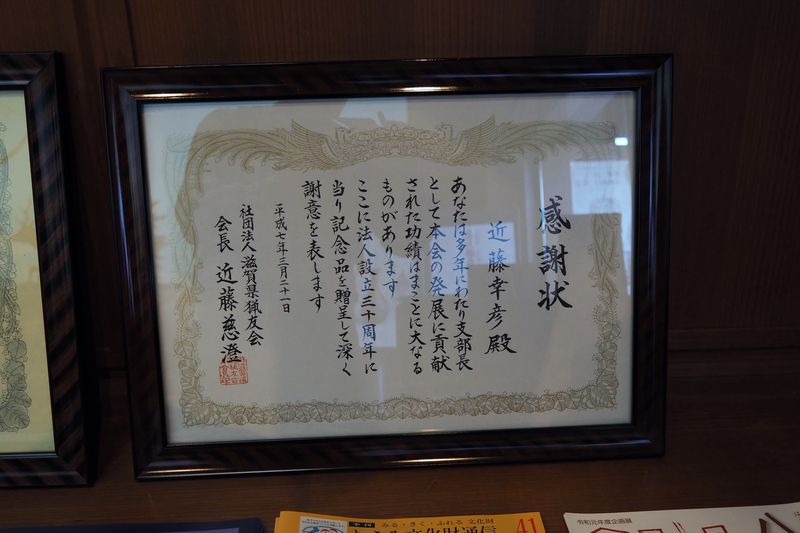 感謝状
近藤幸彦殿
あなたは多年にわたり支部長
として本会の発展に貢献
された功績はまことに大なる
ものがあります
ここに法人設立三十周年に
当り記念品を贈呈して深く
謝意を表します
平成七年三月二十一日
社団法人滋賀県猟友会
会長 近藤慈澄
季刊 みる・きく・ふれる 文化財
文化財通信
41
令和元年度企画展